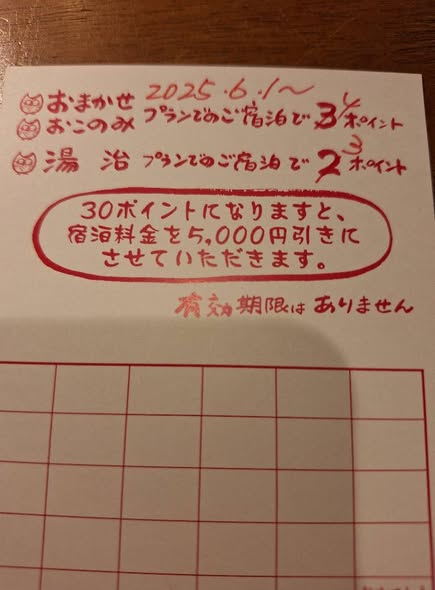 2025.6.1～
おまかせ
おこのみ プランでのご宿泊で 3 4 ポイント
湯治 プランでのご宿泊で 2 3 ポイント
30ポイントになりますと、
宿泊料金を5,000円引きに
させていただきます。
有効期限はありません